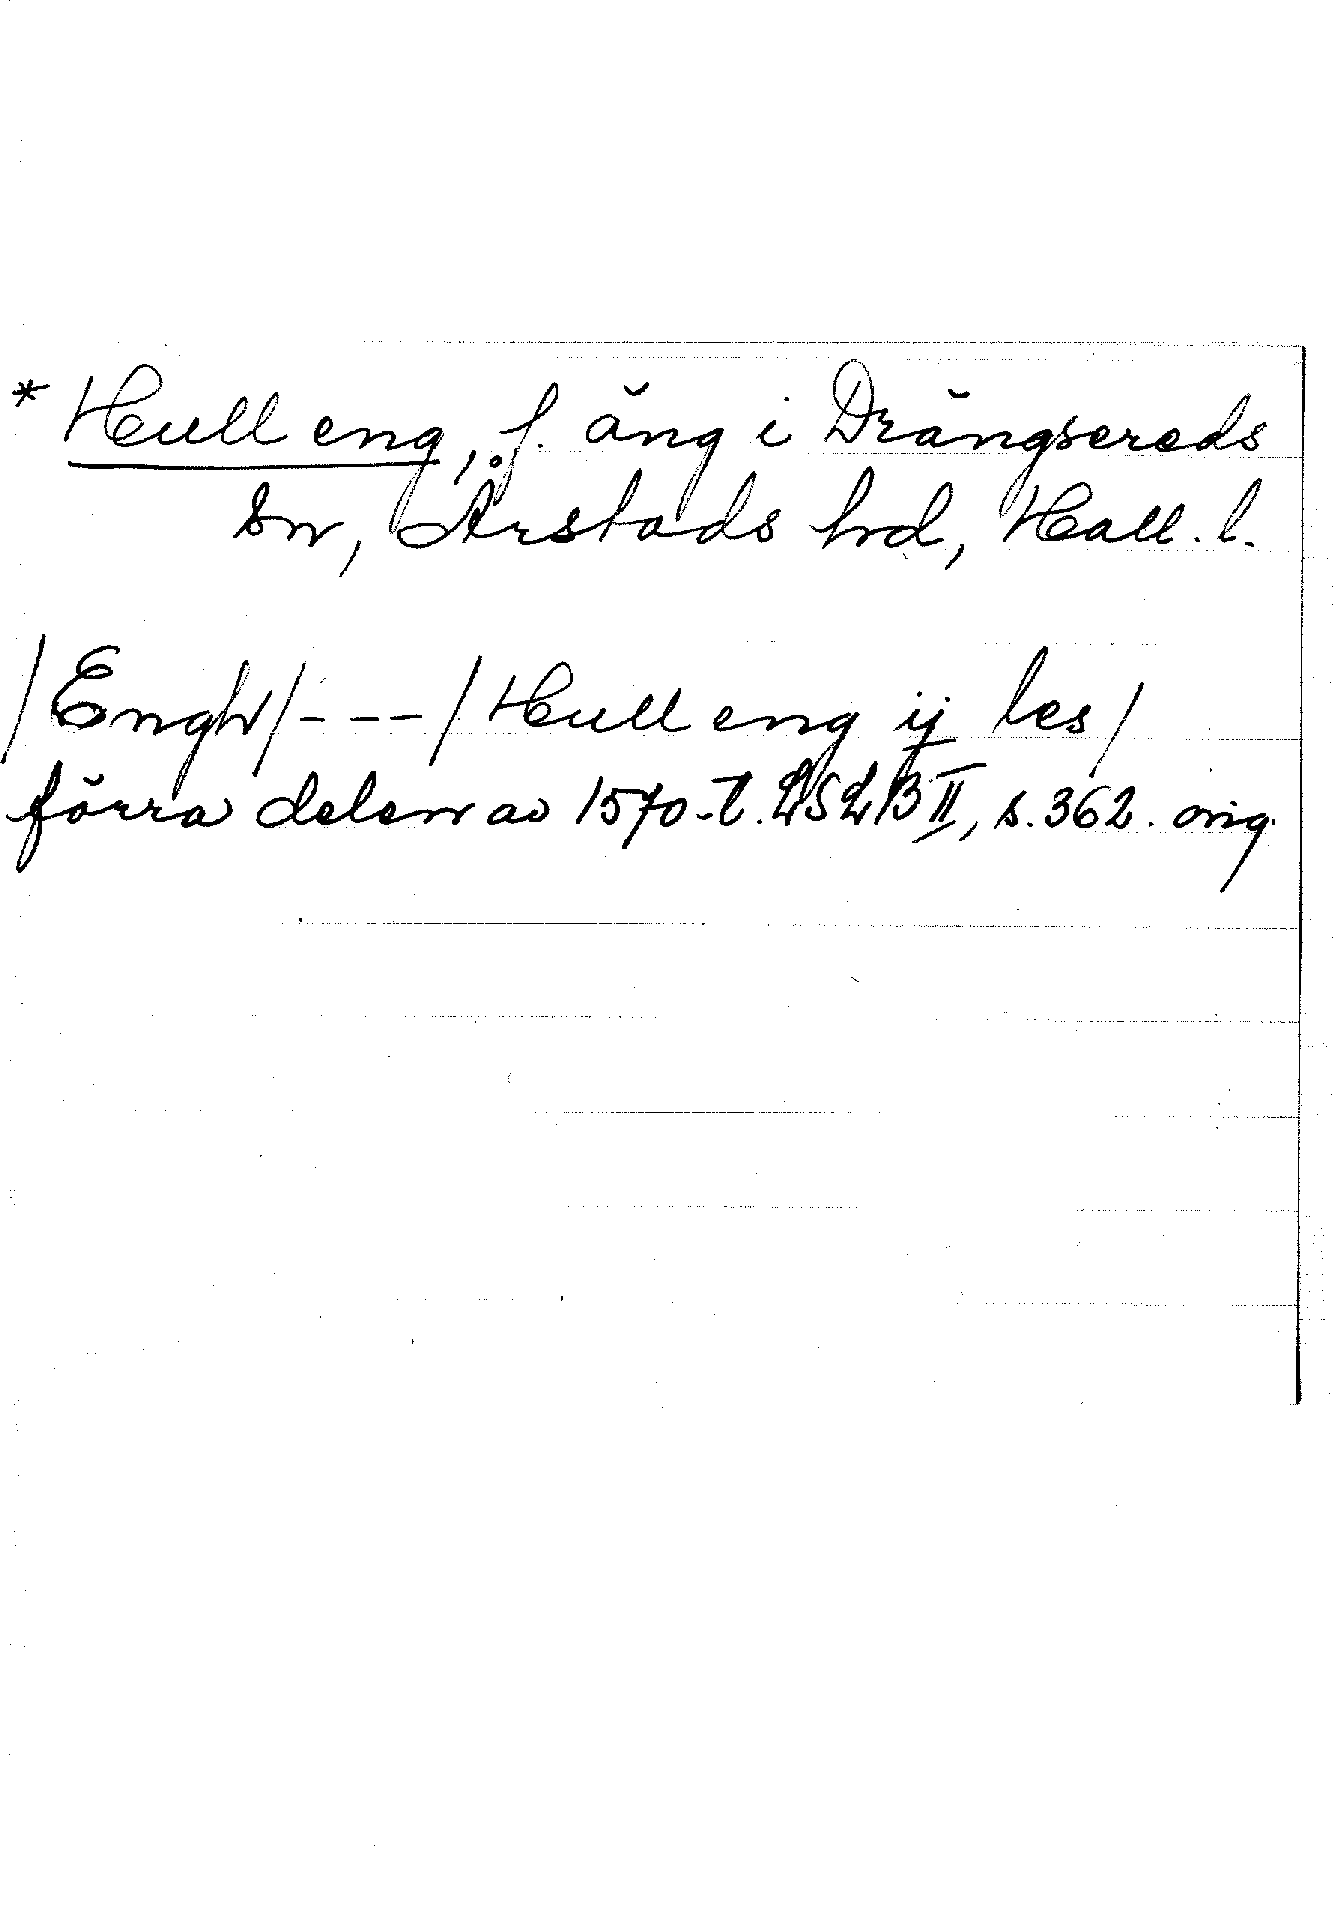 * Hull eng, f. äng i Drängsereds
sn, Årstads hrd, Hall. l.
/Engh/ - - - / Hull eng ij les /
förra delen av 1570-t. LSLB II, s. 362. orig.